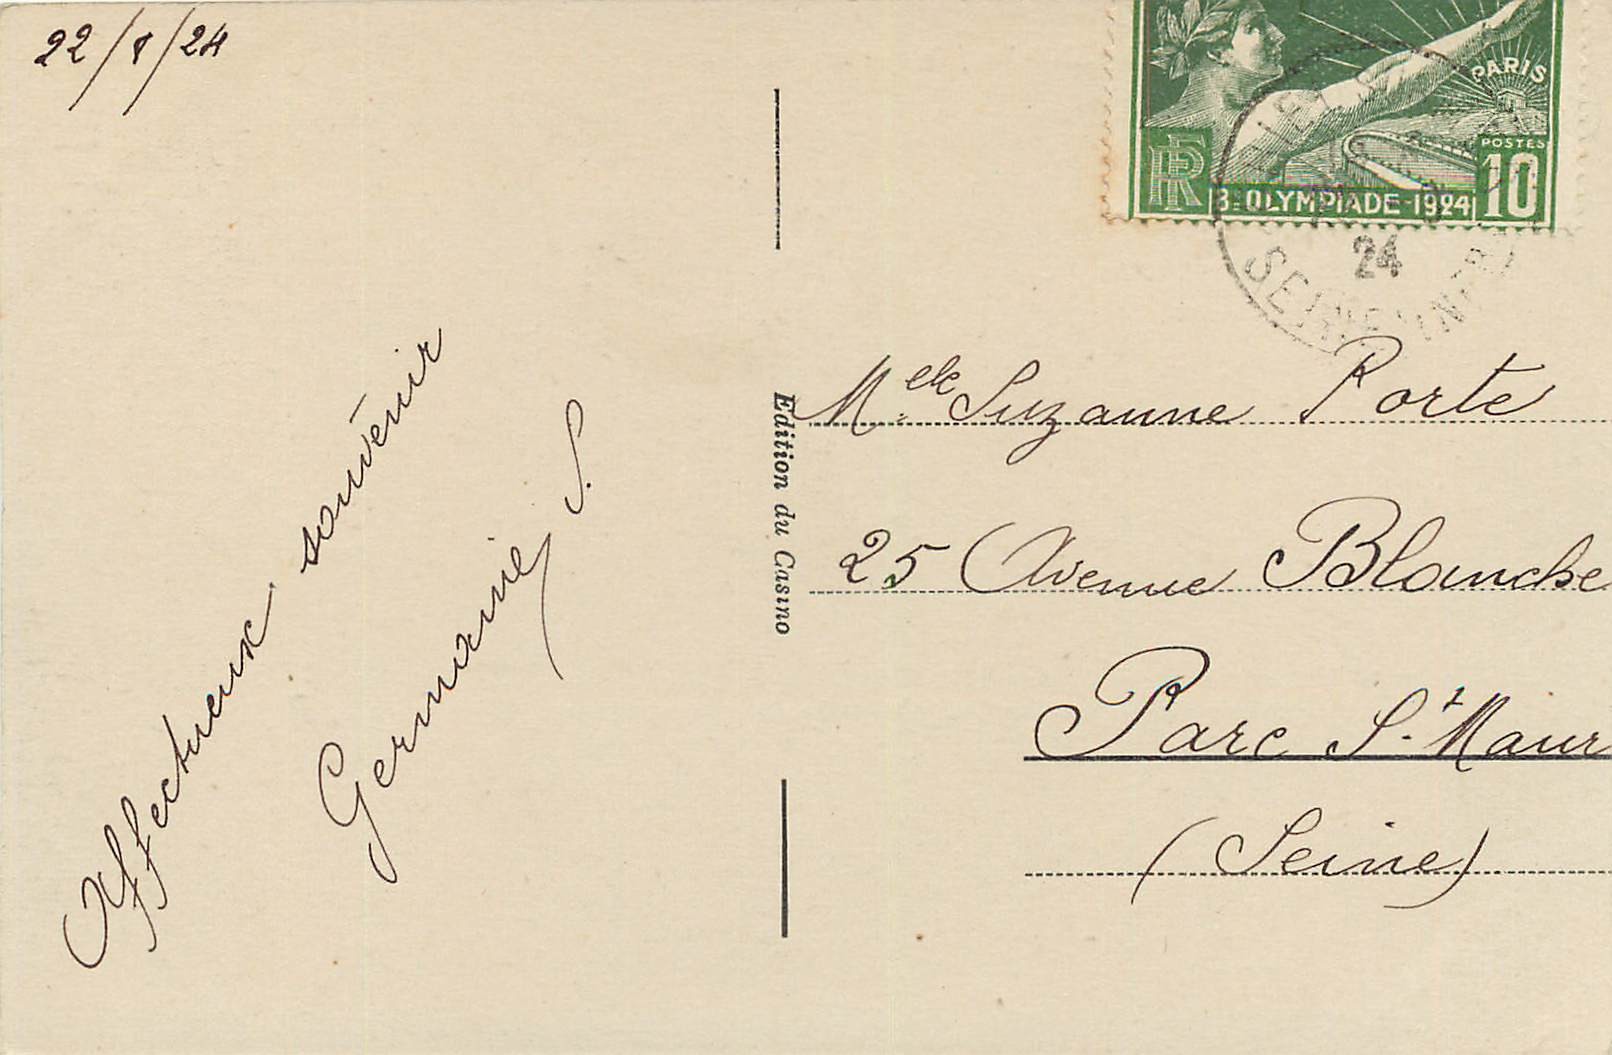 22/8/24
PARIS
POSTES
RF
8e OLYMPIADE-1924
10
24
SEINE INFRE
Affectueux souvenir
Germaine S.
Edition du Casino
Melle Suzanne Porte
25 Avenue Blanche
Parc St. Maur
(Seine)